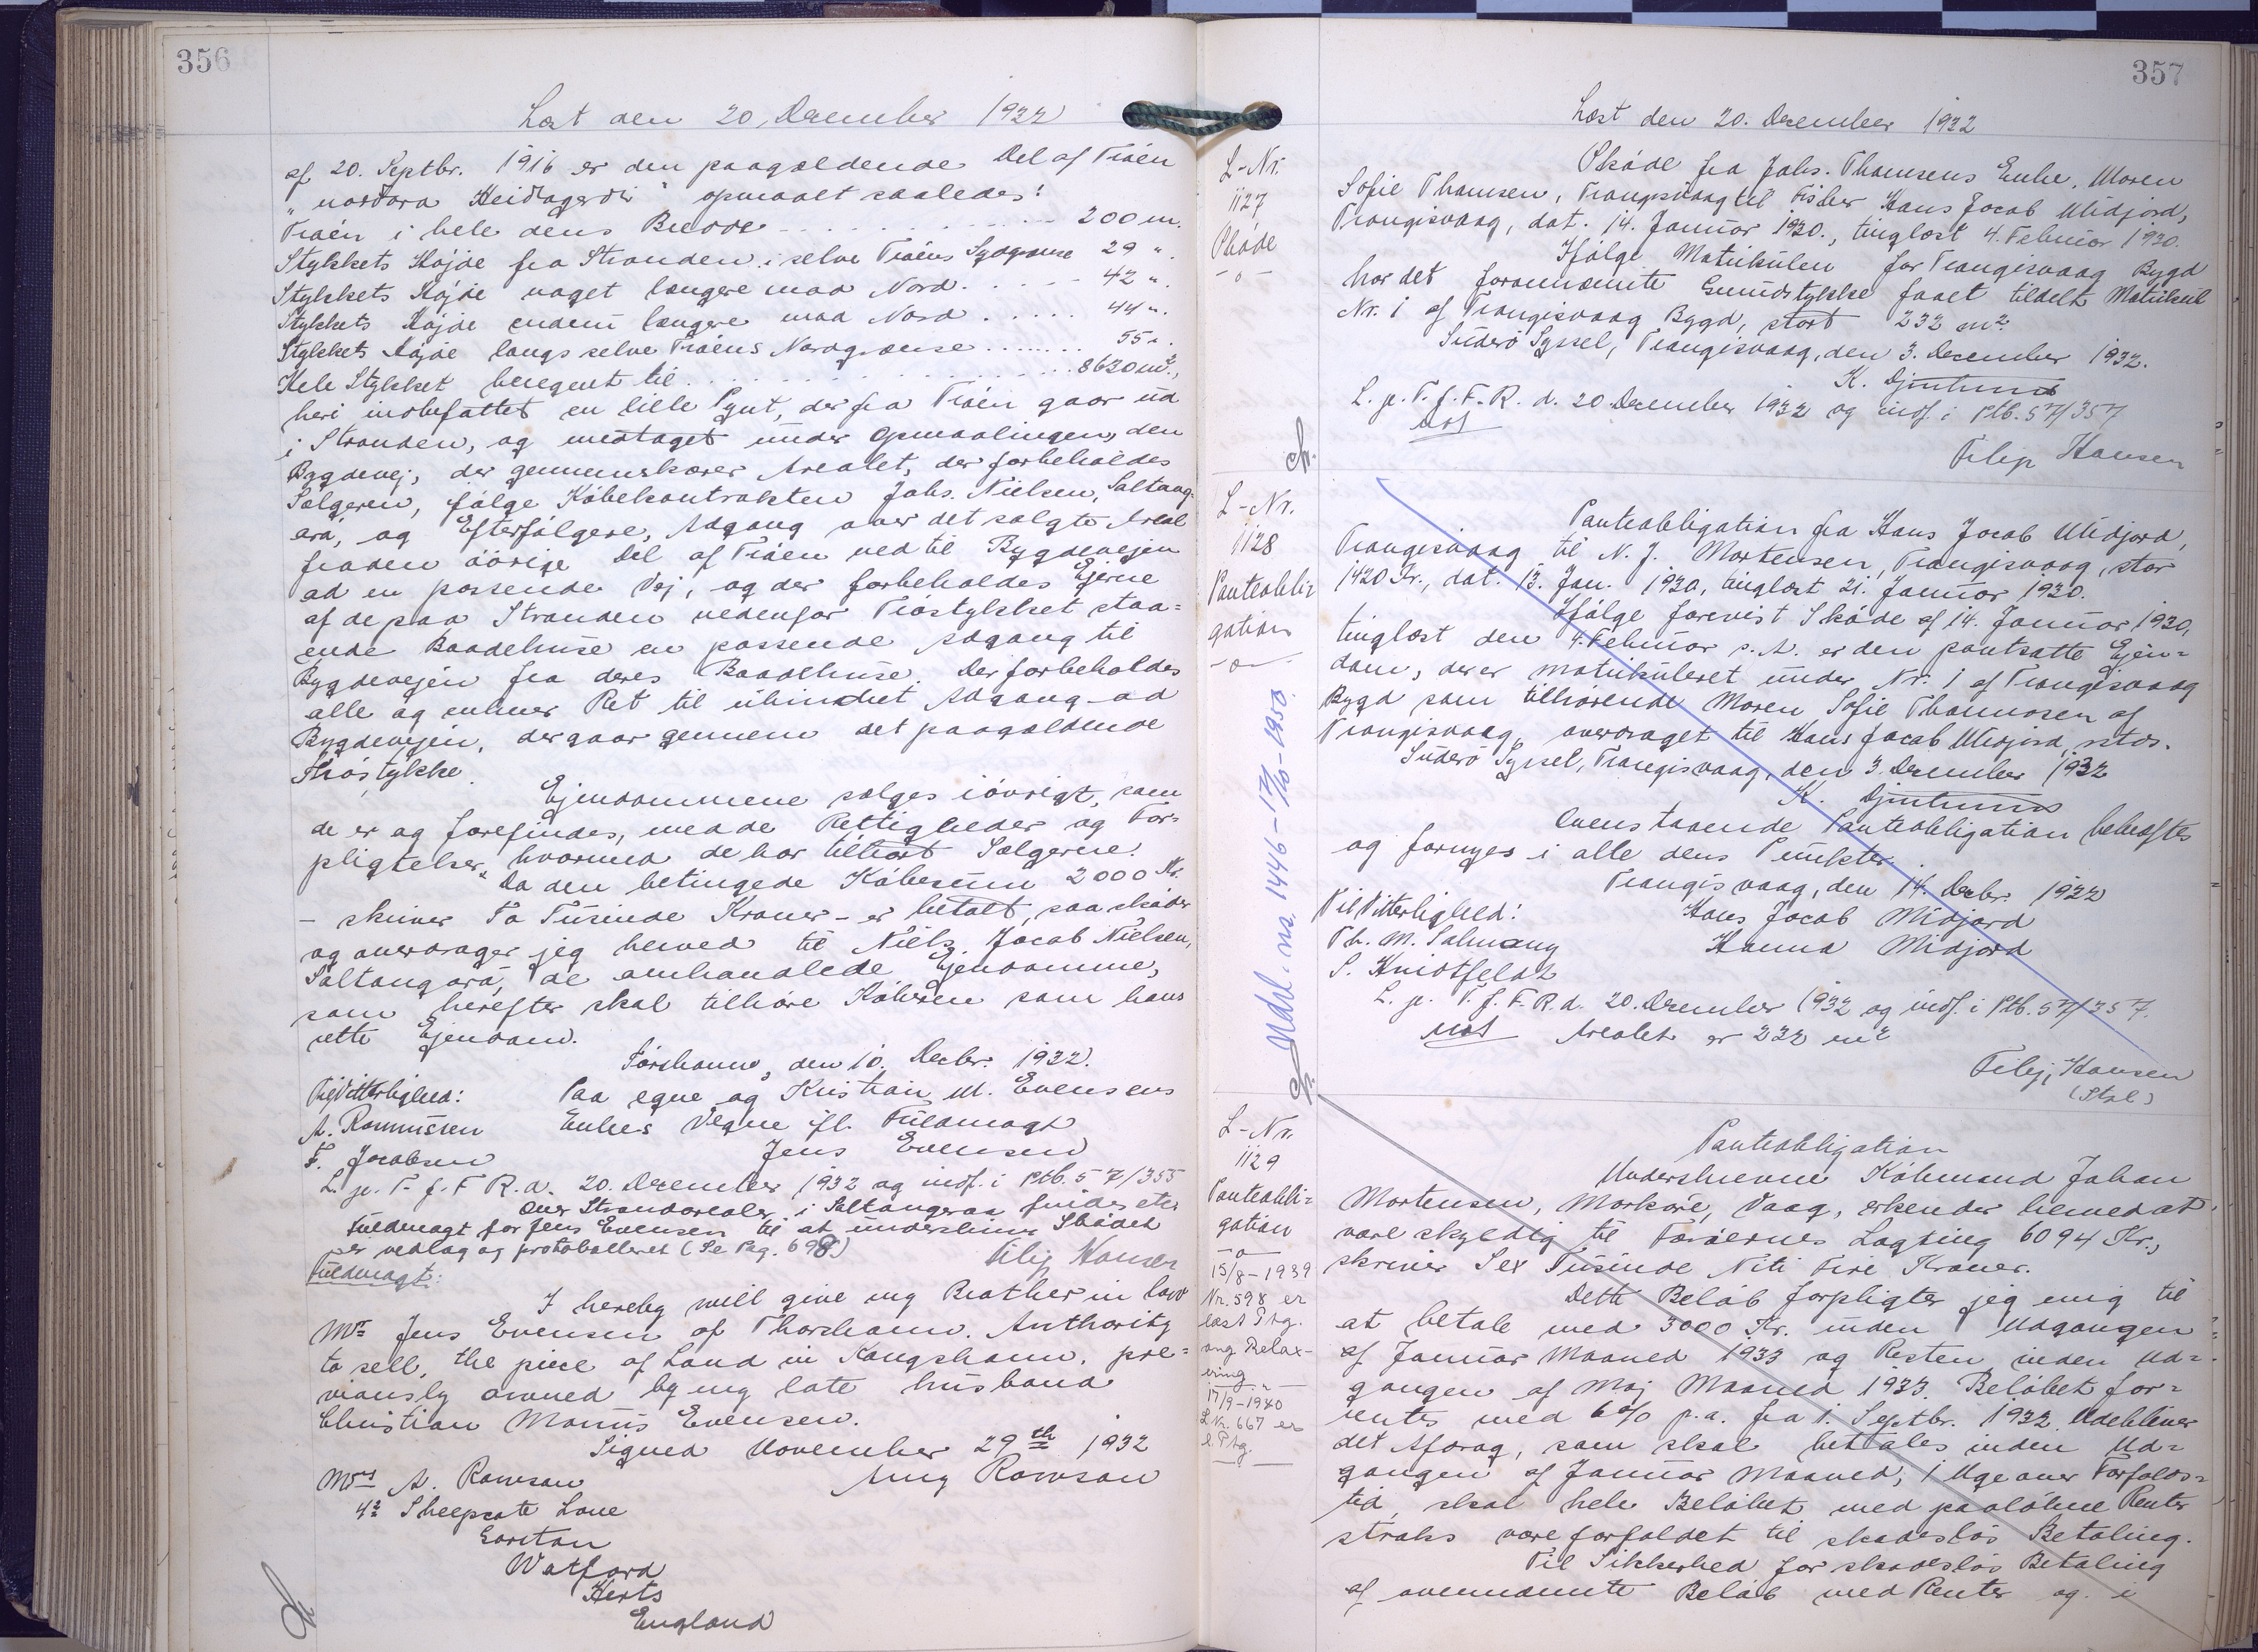 356
Læst den 20. December 1932
af 20. Septbr. 1916 er den paagældende Del af Trøén
"nordara Heidagerdi" opmaalt saaledes:
Trøén i hele dens Bredde - . . . . . . . - - 200 m.
Stykkets Højde fra Stranden i selve Trøéns Sydgrænse 29 ".
Stykkets Højde noget længere mod Nord. . . . . - 42 ".
Stykkets Højde endnu længere mod Nord . . . . . 44 ".
Stykkets Højde langs selve Trøéns Nordgrænse . . . . . . . 55 ".
Hele Stykket beregnet til . . . . . . . . . . . . . . 8630 m².,
heri indbefattet en lille Pynt, der fra Trøén gaar ud
i Stranden, og medtaget under Opmaalingen, den
Bygdevej, der gennemskærer Arealet, der forbeholdes
Sælgeren, ifølge Købekontrakten Johs. Nielsen, Saltang-
ará, og Efterfølgere, Adgang over det solgte Areal
fra den øvrige Del af Trøen ned til Bygdevejen
ad en passende Vej, og der forbeholdes Ejerne
af de paa Stranden nedenfor Trøstykket staa=
ende Baadehuse en passende Adgang til
Bygdevejen fra deres Baadehuse. Der forbeholdes
alle og enhver Ret til uhindret Adgang ad
Bygdevejen, der gaar gennem det paagældende
Trøstykke.
Ejendommene sælges iøvrigt, som
de er og forefindes, med de Rettigheder og For-
pligtelser, hvormed de har tilhørt Sælgerne.
Da den betingede Købesum 2000 Kr.
- skriver To Tusinde Kroner - er betalt, saa skøder
og overdrager jeg herved til Niels Jacob Nielsen,
Saltangará, de omhandlede Ejendomme,
som herefter skal tilhøre Køberen som hans
rette Ejendom.
Tórshavn, den 10. Decbr. 1932.
Til Vitterlighed: Paa egne og Kristian M. Evensens
A. Rasmussen Enkes Vegne ifl. Fuldmagt
F. Jacobsen Jens Evensen
L. p. T. f. F. R. d. 20. December 1932 og indf. i Ptb. 57/355
over Strandarealer i Saltangaraa findes etc
Fuldmagt for Jens Evensen til at underskrive Skødet
er vedlag og protokolleret (Se Pag. 698)
Filip Hansen
Fuldmagt:
I hereby will give my Brother in law
Mr. Jens Evensen of Thorshavn. Authority
to sell, the piece of Land in Kongshavn, pre=
viously owned by my late husband
Christian Monús Evensen.
Signed November 29th 1932
Mrs A. Rowson Amy Rowson
42 Sheepcote Lane
Garston
Watford
Herts
England
357
Læst den 20. December 1932
L-Nr.
1127
Skøde
-o-
Skøde fra Johs. Thomsens Enke, Maren
Sofie Thomsen, Trangisvaag til Fisker Hans Jacob Midjord,
Trangisvaag, dat. 14. Januar 1930., tinglæst 4. Februar 1930.
Ifølge Matrikulen for Trangisvaag Bygd
har det forannævnte Grundstykke faaet tildelt Matrikul
Nr. 1 af Trangisvaag Bygd, stort 232 m².
Suderø Syssel, Trangisvaag, den 3. December 1932.
K. Djurhuus
L. p. T. f. F. R. d. 20. December 1932 og indf. i Ptb. 57/357
Filip Hansen
L-Nr.
1128
Panteobli-
gation
-o-
Panteobligation fra Hans Jacob Midjord,
Trangisvaag til N. J. Mortensen, Trangisvaag, stor
1420 Kr., dat. 13. Jan. 1930, tinglæst 21. Januar 1930.
Ifølge forevist Skøde af 14. Januar 1930,
tinglæst den 4. Februar s. A. er den pantsatte Ejen=
dom, der er matrikuleret under Nr. 1 af Trangisvaag
Bygd som tilhørende Maren Sofie Thomsen af
Trangisvaag, overdraget til Hans Jacob Midjord, sstds.
Suderø Syssel, Trangisvaag, den 3. December 1932
K. Djurhuus
Ovenstaaende Panteobligation bekræftes
og fornyes i alle dens Punkter.
Trangisvaag, den 14. Decbr. 1932
Til Vitterlighed: Hans Jacob Midjord
Th. M. Salmang Hanna Midjord
S. Kridtfeldt
L. p. T. f. F. R. d. 20. December 1932 og indf. i Ptb. 57/357.
Arealet er 232 m²
Filip Hansen
Udsl. ns. 1446 - 17/10-1950.
L-Nr.
1129
Panteobli=
gation
-o-
15/8-1939
Nr. 598 er
læst Ptg.
ang. Relax-
ering
17/9-1940
L Nr. 667 er
l. Ptg.
Panteobligation
Underskrevne Købmand Johan
Mortensen, Morkøre, Vaag, erkender herved at
være skyldig til Færøernes Lagting 6094 Kr.,
skriver Sex Tusinde Niti Fire Kroner.
Dette Beløb forpligter jeg mig til
at betale med 3000 Kr. inden Udgangen
af Januar Maaned 1933 og Resten inden Ud=
gangen af Maj Maaned 1933. Beløbet for=
rentes med 6% p.a. fra 1. Septbr. 1932. Udebliver
det Afdrag, som skal betales inden Ud=
gangen af Januar Maaned, 1 Uge over Forfalds=
tid, skal hele Beløbet med paaløbne Renter
straks være forfaldet til skadesløs Betaling.
Til Sikkerhed for skadesløs Betaling
af ovennævnte Beløb med Renter og i